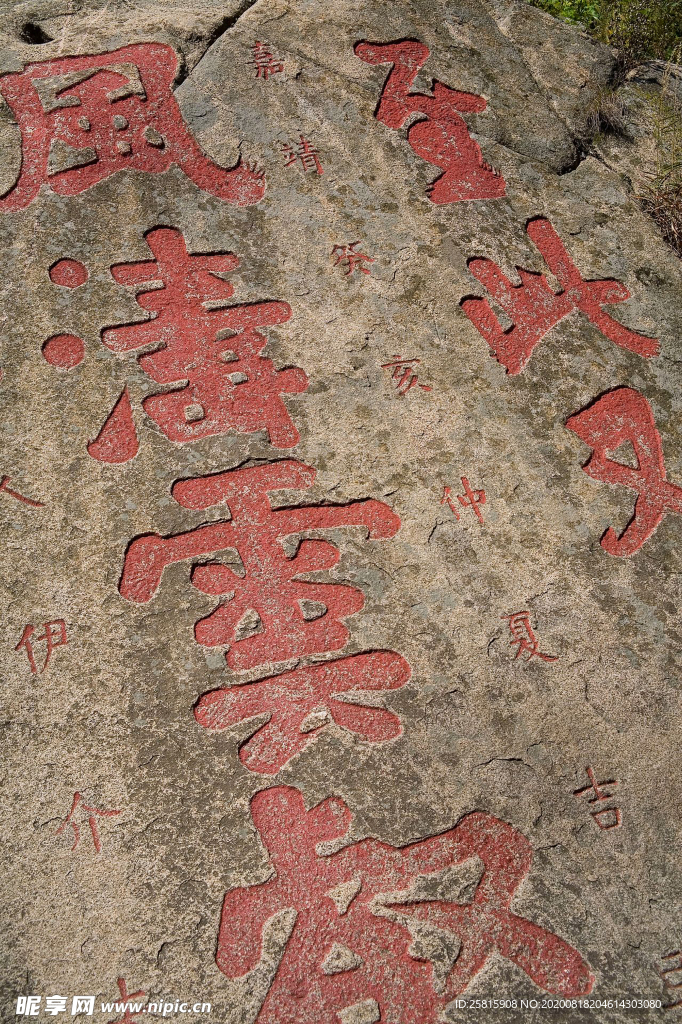 至此
嘉靖癸亥仲夏吉
風濤雲
人伊介
昵享网 www.nipic.cn
ID:25815908 NO:20200818204614303080